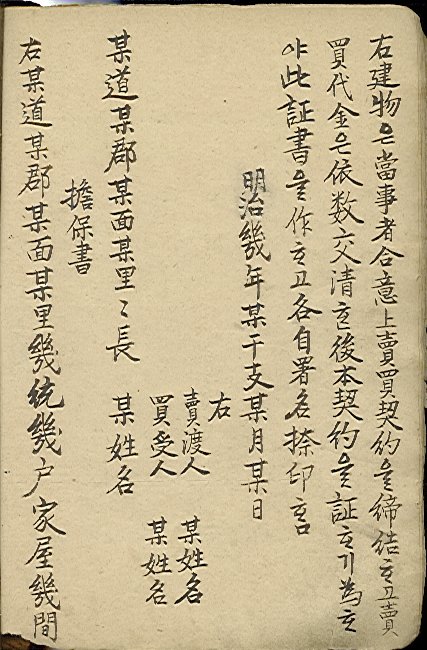 右建物은當事者合意上賣買契約을締結ᄒᆞ고賣
買代金은依数交清ᄒᆞᆫ後本契約을証ᄒᆞ기為ᄒᆞ
야此証書을作ᄒᆞ고各自署名捺印ᄒᆞᆷ
明治幾年某干支某月某日
右
賣渡人 某姓名
買受人 某姓名
某道某郡某面某里〻長 某姓名
擔保書
右某道某郡某面某里幾統幾户家屋幾間